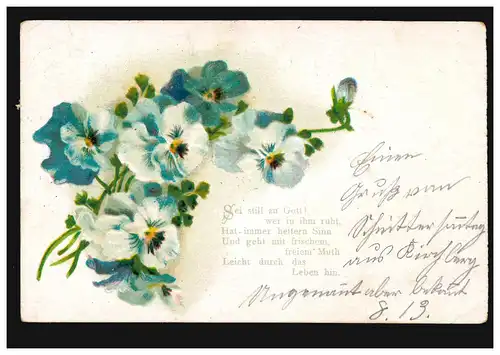 Sei still zu Gott!
wer in ihm ruht,
Hat immer heitern Sinn
Und geht mit frischem,
freiem Muth
Leicht durch das
Leben hin.
Einen
Gruß von
Schnittersonntag
aus Kirchberg
Ungenannt aber bekannt
8. 13.